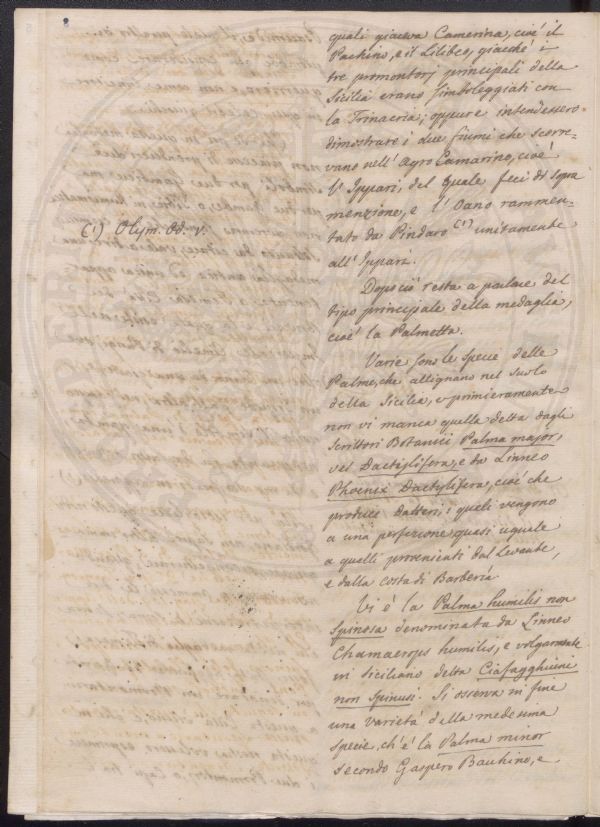 8
quali giaceva Camerina, cioè il
Pachino, e il Lilibeo, giacchè i
tre promontorj principali della
Sicilia erano simboleggiati con
la Trinacria; oppure intendessero
dimostrare i due fiumi che scorre-
vano nell' Agro Camarino, cioè
l' Ippari, del quale feci di sopra
menzione, e l' Oano rammen-
tato da Pindaro (1) unitamente
all' Ippari.
(1) Olym. Od. V.
Dopo ciò resta a parlare del
tipo principale della medaglia,
cioè la Palmetta.
Varie sono le specie delle
Palme, che allignano nel suolo
della Sicilia, e primieramente
non vi manca quella detta dagli
Scrittori Botanici Palma major,
vel Dactylifera, e da Linneo
Phoenix Dactylifera, cioè che
produce Datteri; i quali vengono
a una perfezione quasi uguale
a quelli provenienti dal Levante,
e dalla costa di Barberia
Vi è la Palma humilis non
spinosa denominata da Linneo
Chamaerops humilis, e volgarmente
in Siciliano detta Ciafagghiuni
non spinusi. Si osserva in fine
una varietà della medesima
specie, ch' è la Palma minor
secondo Gaspero Bauhino, e